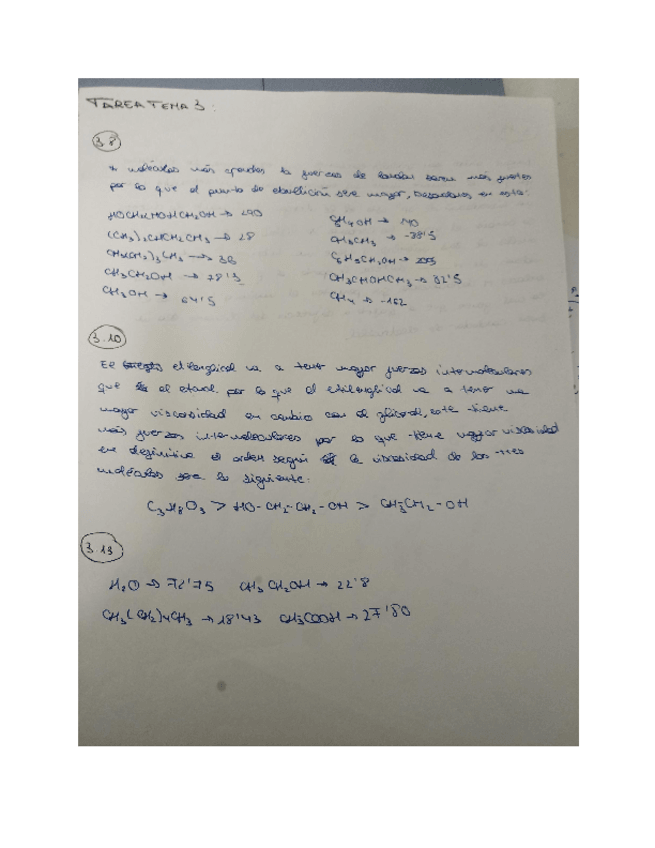 TAREA TEMA 3:
3.8
* moléculas más grandes la fuerzas de london seran más fuertes
por lo que el punto de ebullición sera mayor, basandonos en esto:
HOCH2CHOHCH2OH → 290
(CH3)2CHCH2CH3 → 28
CH3(CH2)3CH3 → 36
CH3CH2OH → 78'5
CH3OH → 64'5
→ 40
CH3CH3 → -88'5
C6H5CH2OH → 205
CH3CHOHCH3 → 82'5
CH4 → -162
3.10
El etilenglicol va a tener mayor fuerzas intermoleculares
que el etanol. por lo que el etilenglicol va a tener una
mayor viscosidad en cambio con el glicerol, este tiene
más fuerzas intermoleculares por lo que tiene mayor viscosidad
en definitiva el orden según la viscosidad de las tres
moléculas sea la siguiente:
C3H8O3 > HO-CH2-CH2-OH > CH3CH2-OH
3.13
H2O → 72'75 CH3CH2OH → 22'8
CH3(CH2)4CH3 → 18'43 CH3COOH → 27'80